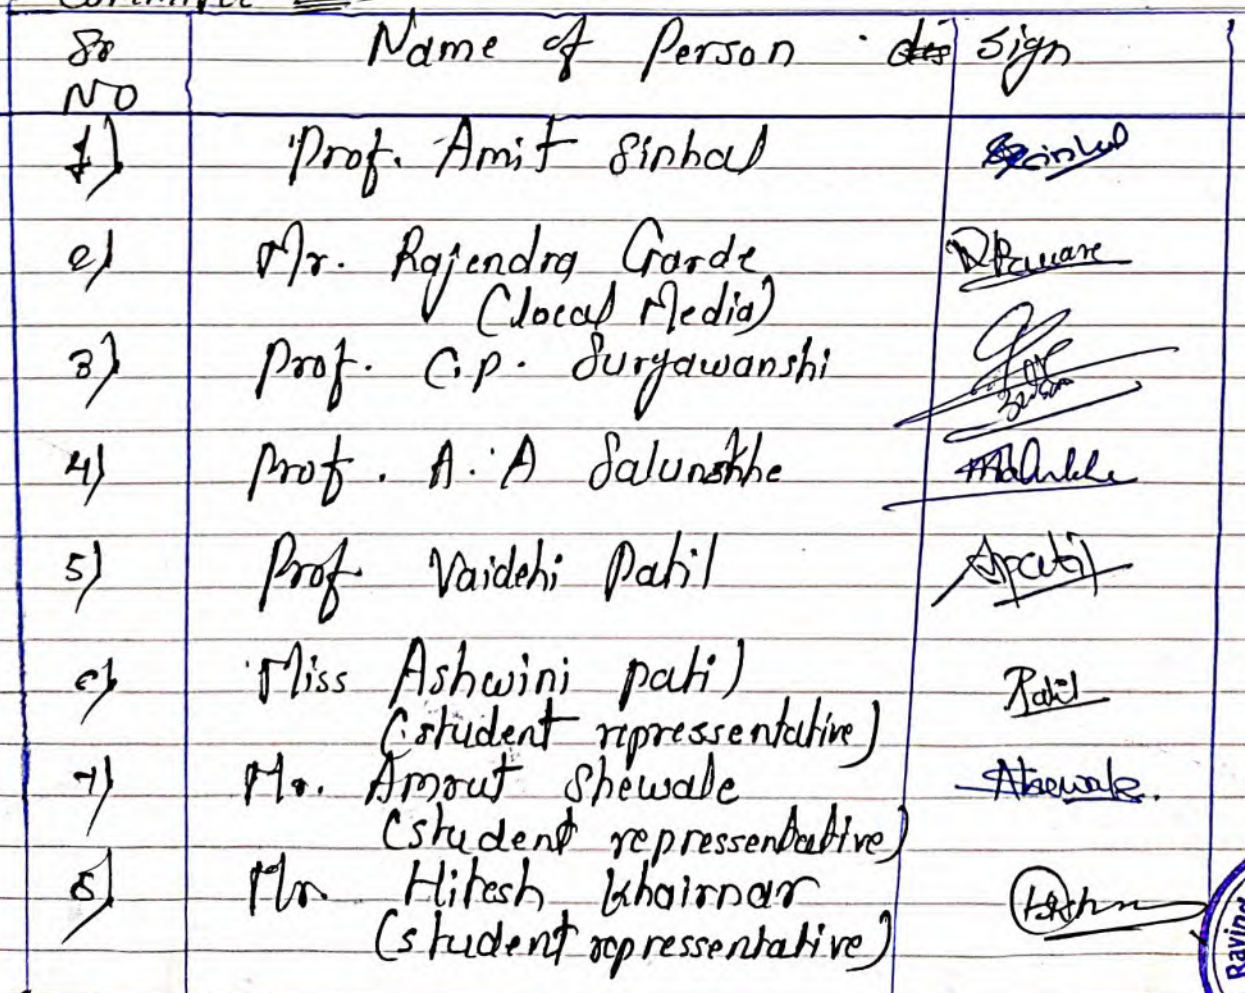 Committee
Sr Name of Person Sign
NO
1) Prof. Amit Sinhal Sinhal
2) Mr. Rajendra Garde
(local Media)
3) Prof. C.P. Suryawanshi
4) Prof. A. A Salunkhe
5) Prof Vaidehi Patil Apatil
6) Miss Ashwini patil Patil
(student repressentative)
7) Mr. Amrut Shewale
(student repressentative)
8) Mr. Hitesh Khairnar
(student repressentative)
Ravind